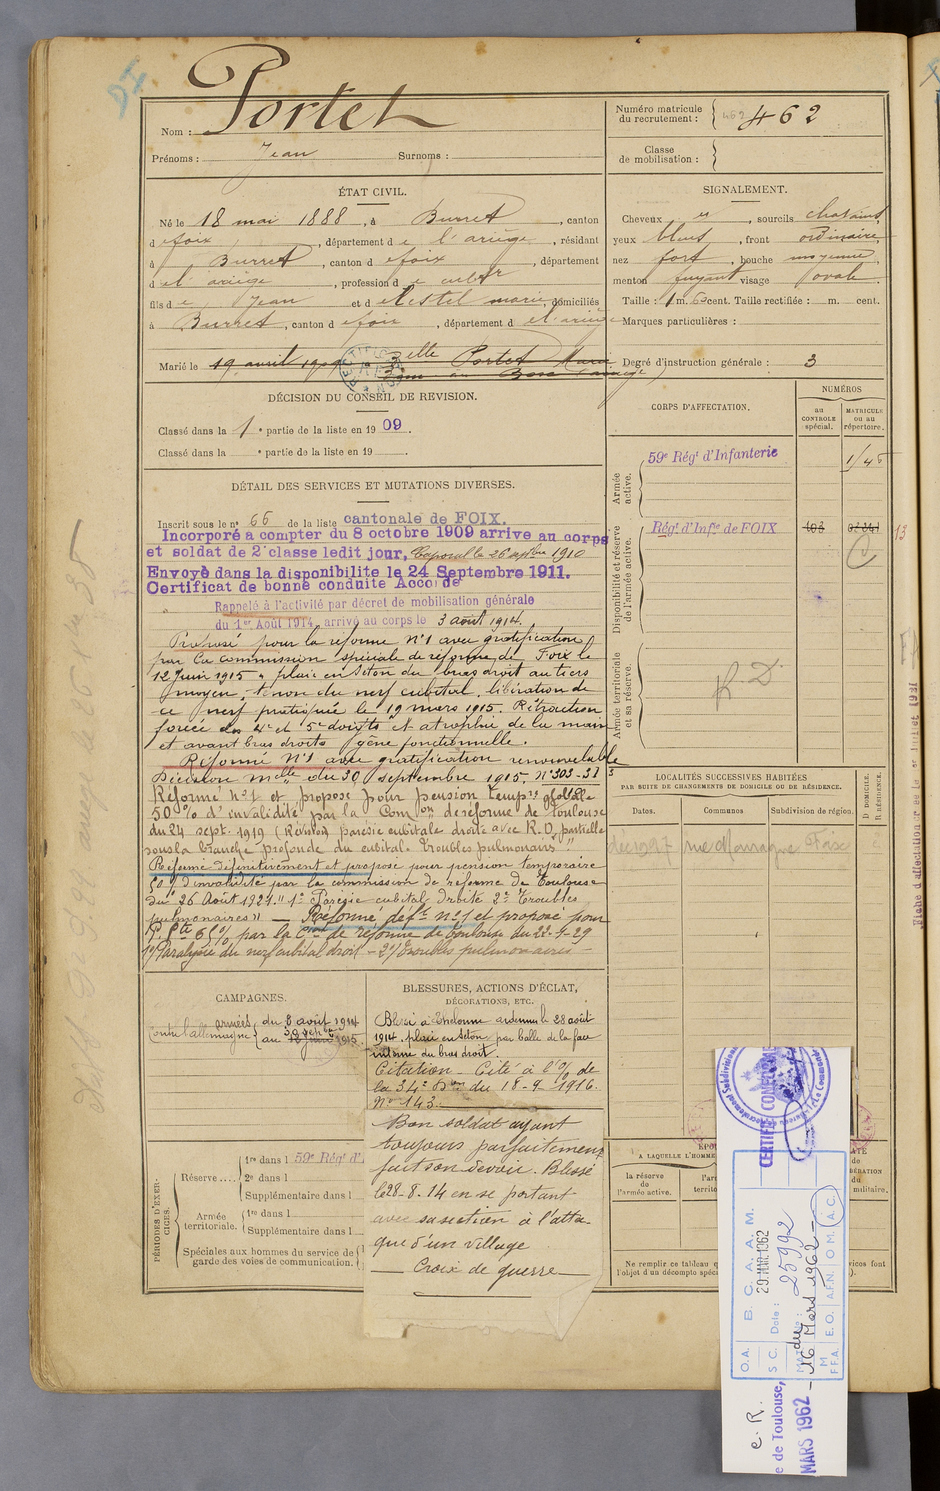 Nom : Portet
Prénoms : Jean Surnoms :
Numéro matricule du recrutement : 462
Classe de mobilisation :
ÉTAT CIVIL.
Né le 18 mai 1888, à Burret, canton
d e foix, département d e l'ariège, résidant
à Burret, canton d e foix, département
d e l'ariège, profession d e cultr
fils d e Jean et d e Estel marie, domiciliés
à Burret, canton d e foix, département d e l'ariège
Marié le 19 avril 1909 elle Portet Marie
SIGNALEMENT.
Cheveux et, sourcils chatains
yeux bleus, front ordinaire,
nez fort, bouche moyenne,
menton fuyant visage ovale.
Taille : 1 m. 6 cent. Taille rectifiée : m. cent.
Marques particulières :
Degré d'instruction générale : 3
DÉCISION DU CONSEIL DE REVISION.
Classé dans la 1e partie de la liste en 1909.
Classé dans la e partie de la liste en 19 .
DÉTAIL DES SERVICES ET MUTATIONS DIVERSES.
Inscrit sous le n° 66 de la liste cantonale de FOIX.
Incorporé à compter du 8 octobre 1909 arrive au corps
et soldat de 2e classe ledit jour. Caporal le 26 septbre 1910
Envoyé dans la disponibilite le 24 Septembre 1911.
Certificat de bonne conduite Accordé
Rappelé à l'activité par décret de mobilisation générale
du 1er Août 1914, arrivé au corps le 3 août 1914.
Proposé pour la réforme N°1 avec gratification
par la commission spéciale de réforme de Foix le
12 Juin 1915 "plaie en séton du bras droit au tiers
moyen, lésion du nerf cubital, libération de
ce nerf pratiquée le 19 mars 1915. Rétraction
forcée des 4e et 5e doigts et atrophie de la main
et avant bras droits gêne fonctionnelle.
Réformé N°1 avec gratification renouvelable
Décision mlle du 30 septembre 1915, N° 303-38
Réformé n°1 et proposé pour pension tempre globale
50 % d'invalidité par la Comon de réforme de Toulouse
du 24 sept. 1919 (Révision) parésie cubitale droite avec R.D. partielle
sous la branche profonde du cubital. troubles pulmonairs"
Réformé définitivement et proposé pour pension temporaire
50 % d'invalidité par la commission de réforme de Toulouse
du 26 Août 1921. "1° Parésie cubital Droite 2° Troubles
pulmonaires" — Réformé deft n°1 et proposé pour
P. Pte 65% par la Con de réforme de Toulouse du 22-1-29
1°/ Paralysie du nerf cubital droit – 2°/ Troubles pulmonaires –
CORPS D'AFFECTATION.
NUMÉROS
au contrôle spécial.
matricule ou au répertoire.
Armée active.
59e Régt d'Infanterie
Disponibilité et réserve de l'armée active.
Régt d'Infie de FOIX
13
Armée territoriale et sa réserve.
R. D.
LOCALITÉS SUCCESSIVES HABITÉES
PAR SUITE DE CHANGEMENTS DE DOMICILE OU DE RÉSIDENCE.
Dates. Communes Subdivision de région. D DOMICILE. R RÉSIDENCE.
rue Foix
CAMPAGNES.
Contre l'allemagne du 3 août 1914
au 30 septbre 1915
BLESSURES, ACTIONS D'ÉCLAT,
DÉCORATIONS, ETC.
Blessé à Thelonne ardennes le 28 août
1914. plaie en séton par balle de la face
interne du bras droit.
Citation – Cité à l'O/. de
la 34e Don du 18-9-1916
N° 143.
Bon soldat ayant
toujours parfaitement
fait son devoir. Blessé
le 28-8-14 en se portant
avec sa section à l'atta-
que d'un village
— Croix de guerre —
PÉRIODES D'EXERCICES.
Réserve .... 1re dans l 59e Régt d'
2e dans l
Supplémentaire dans l
Armée territoriale. 1re dans l
Supplémentaire dans l
Spéciales aux hommes du service de
garde des voies de communication.
A LAQUELLE L'HOMME
la réserve de l'armée active.
Ne remplir ce tableau
l'objet d'un décompte spéc
CERTIFIÉ CONFORME
O.A. B. C. A. A. M.
S C. Date : 29 MAR. 1962
25992
du 16 Mars 1962
F.F.A. E.O. A.F.N. O M A.C.
C. R.
e de Toulouse,
MARS 1962